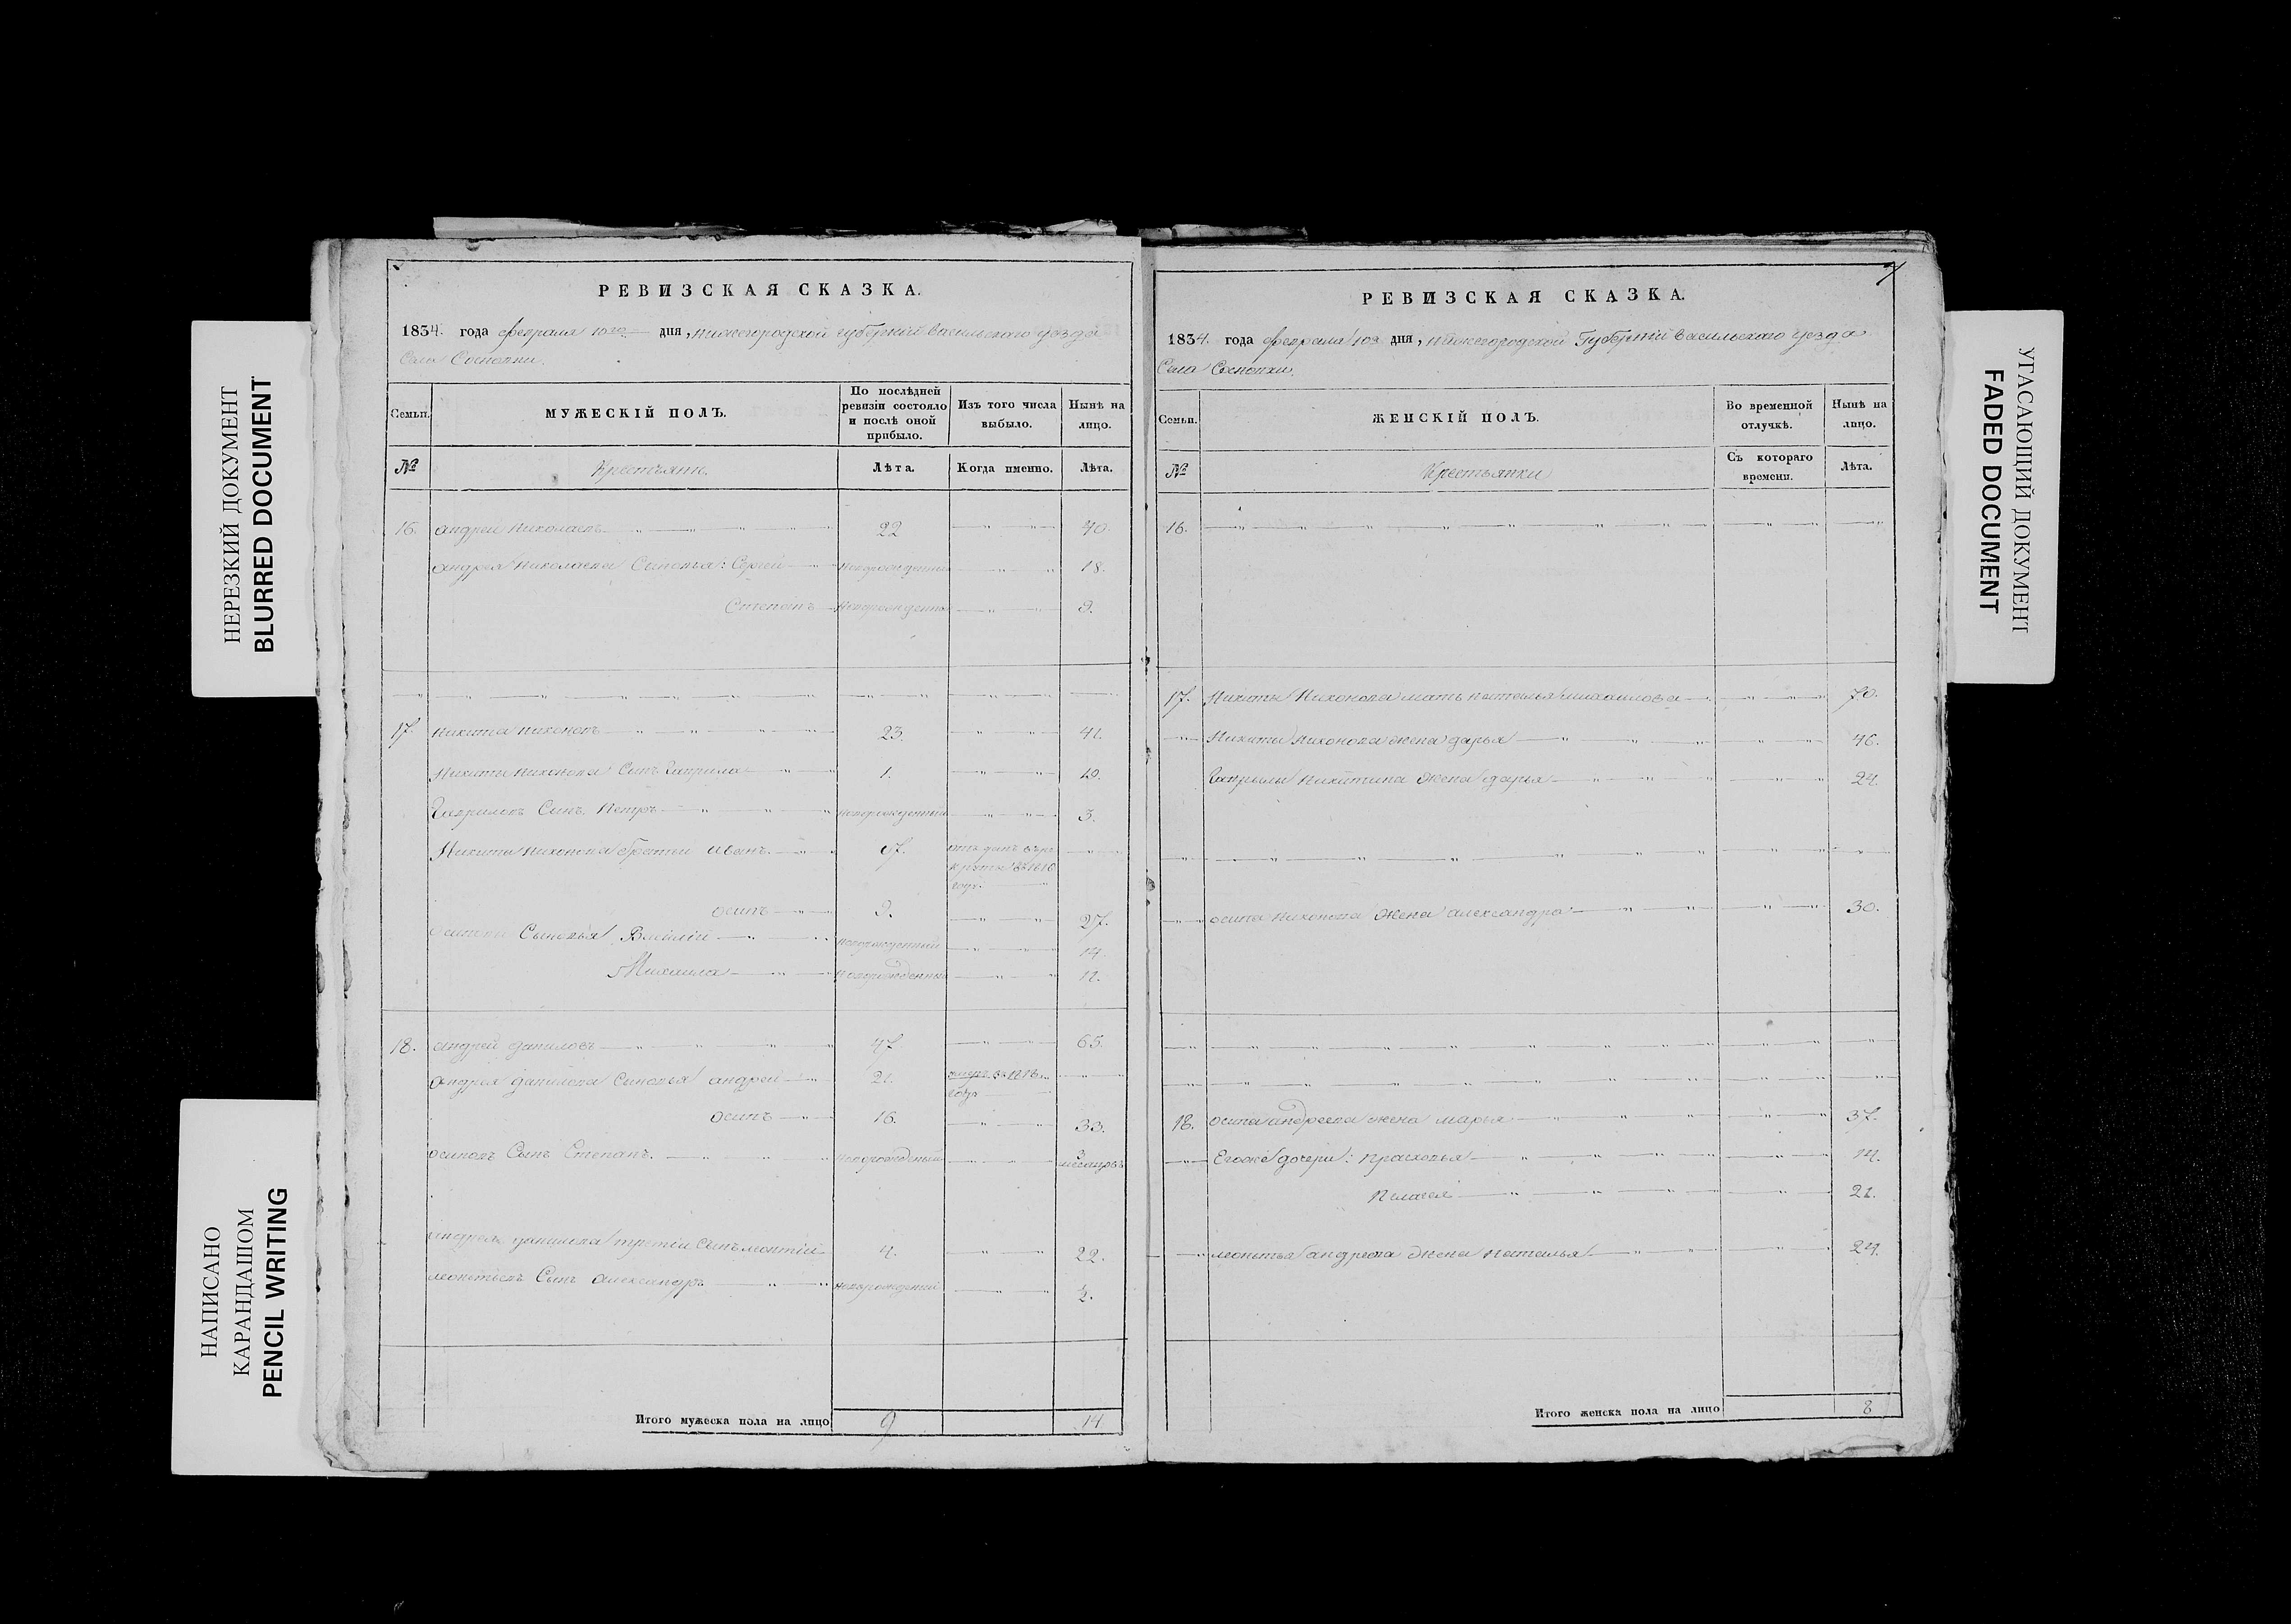 НЕРЕЗКИЙ ДОКУМЕНТ
BLURRED DOCUMENT
НАПИСАНО
КАРАНДАШОМ
PENCIL WRITING
РЕВИЗСКАЯ СКАЗКА.
1834. года февраля 10го дня, Нижегородской губернiи Васильскаго уезда
Села Сосновки.
Семьи.
МУЖЕСКIЙ ПОЛЪ.
По послѣдней ревизiи состояло и послѣ оной прибыло.
Изъ того числа выбыло.
Нынѣ на лицо.
№
Крестьяне.
Лѣта.
Когда именно.
Лѣта.
16. андрей Николаевъ 22 40.
андрея Николаева Сыновья: Сергей новорожденный 18.
Степанъ новорожденной 9.
17 никита никоновъ 23. 41.
Никиты никонова Сынъ Гаврила 1. 19.
Гавриловъ Сынъ Петръ новорожденный 3.
Никиты никонова братьи иванъ 17.
году
осипъ 9. 27.
Сыновья Василiй новорожденный 14.
Михаила новорожденный 12.
18. андрей даниловъ 47 65.
андрея данилова Сыновья андрей 21. году
осипъ 16. 33.
осиповъ Сынъ Степанъ. новорожденый 3 месецовъ
андрея данилова третiй Сынъ леонтiй 4. 22.
леонтьевъ Сынъ александръ новорожденый ½.
Итого мужеска пола на лицо 9 14
7
РЕВИЗСКАЯ СКАЗКА.
1834. года февраля 10го дня, Нижегородской Губернiи Васильскаго уезда
Села Сосновки.
Семьи.
ЖЕНСКIЙ ПОЛЪ.
Во временной отлучкѣ.
Нынѣ на лицо.
№
Крестьянки
Съ котораго времени.
Лѣта.
16.
17. Никиты Никонова мать наталья михаилова 70.
Никиты Никонова жена дарья 46.
Гаврилы никитина жена дарья 24.
осипа никонова жена александра 30.
18. осипа андреева жена марья 37.
Егоже дочери: прасковья 14.
Пелагея 21.
леонтья андреева жена наталья 24.
Итого женска пола на лицо 8
УГАСАЮЩИЙ ДОКУМЕНТ
FADED DOCUMENT